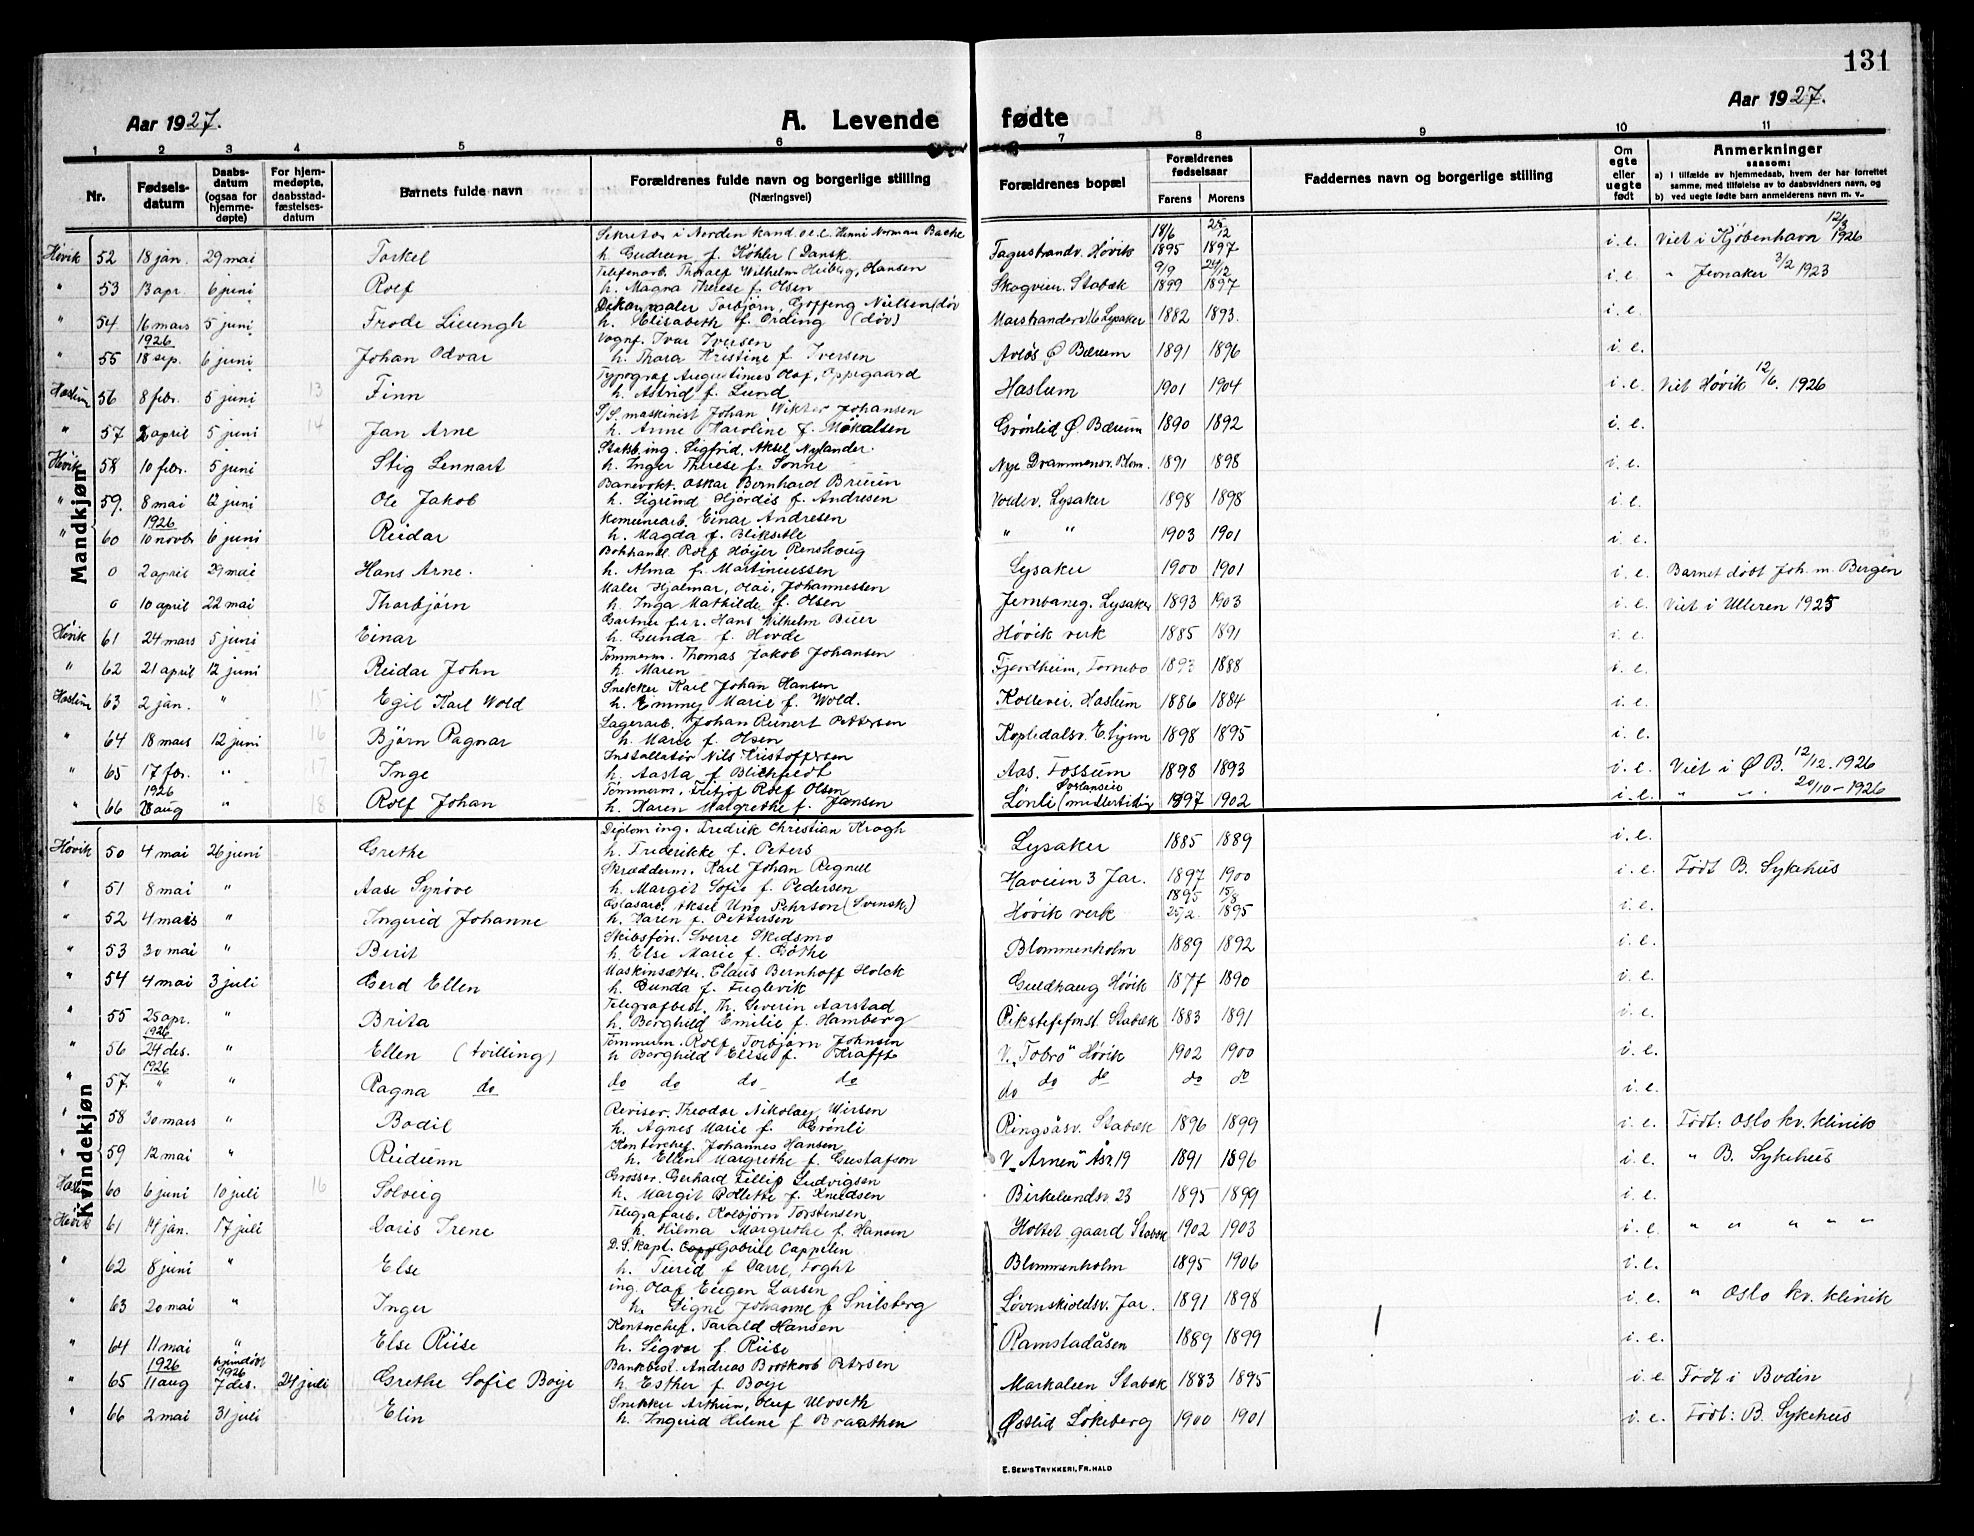 131
Aar 1927. A. Levende fødte Aar 1927.
1 2 3 4 5 6 7 8 9 10 11
Nr. Fødsels-datum Daabs-datum (ogsaa for hjemme-døpte) For hjem-medøpte, daabsstad-fæstelses-datum Barnets fulde navn Forældrenes fulde navn og borgerlige stilling (Næringsvei) Forældrenes bopæl Forældrenes fødselsaar Farens Morens Faddernes navn og borgerlige stilling Om egte eller uegte født Anmerkninger saasom: a) I tilfælde av hjemmedaab, hvem der har forrettet samme, med tilføielse av to daabsvidners navn, og b) ved uegte fødte barn anmelderens navn m. v.
Mandkjøn
Sekretær i Norden kand. oec. Henri Norman Bache 18/6 12/3
Høvik 52 18 jan. 29 mai Torkel h. Gudrun f. Köhler (Dansk Fagerstrandv. Høvik 1895 1897 i. e. Viet i Kjøbenhavn 1926
Telefonarb. Thoralf Wilhelm Heiberg, Hansen 9/9 24/12
" 53 13 apr. 6 juni Rolf h. Magna Therese f. Olsen Skogveien. Stabæk 1899 1897 i. e. " Jevnaker 3/2 1923
Dekor. maler Torbjørn, Goffeng Nielsen (døv
" 54 16 mars 5 juni Frode Lieungh h. Elisabeth f. Ording (døv) Marstranderv. 16 Lysaker 1882 1893. i. e.
1926 Vognf. Ivar Iversen
" 55 18 sep. 6 juni Johan Odvar h. Thora Kristine f. Iversen Avløs Ø. Bærum 1891 1896 i. e.
Typograf Augustinus Olaf, Oppegaard
Haslum 56 8 febr. 5 juni 13 Finn h. Astrid f. Lund Haslum 1901 1904 i. e. Viet Høvik 12/6. 1926
S/S maskinist Johan Wiktor Johansen
" 57 2 april 5 juni 14 Jan Arne h. Anne Karoline f. Mækalsen Grønlid Ø. Bærum 1890 1892 i. e.
Statsb. ing. Sigfrid, Aksel Nylander.
Høvik 58 10 febr. 5 juni Stig Lennart h. Inger Therese f. Sønne Nye Drammensv. Blom. 1891 1898 i. e.
Banevokt. Oskar Bernhard Bruun
" 59. 8 mai 12 juni Ole Jakob h. Sigrund Hjørdis f. Andresen Voldsv. Lysaker 1898 1898 i. e.
1926 Komunearb. Einar Andresen
" 60 10 novbr 6 juni Reidar h. Magda f. Bliksetle " " 1903 1901 i. e.
Bokhandl. Rolf Høyer Renskoug
0 2 april 29 mai Hans Arne. h. Alma f. Martiniussen Lysaker 1900 1901 i. e. Barnet døbt Joh. m. Bergen
Maler Hjalmar, Olai, Johannessen
0 10 april 22 mai Thorbjørn h. Inga Mathilde f. Olsen Jernbaneg. Lysaker 1893 1903 i. e. Viet i Ulleren 1925
Gartner f.v.r. Hans Wilhelm Beier
Høvik 61 24 mars 5 juni Einar h. Gunda f. Hovde Høvik verk 1885 1891 i. e.
Tømmerm. Thomas Jakob Johansen
" 62 21 april 12 juni Reidar John h. Maren Fjordheim, Fornebo 1893 1888 i. e.
Snekker Karl Johan Hansen
Haslum 63 2 jan. " 15 Egil Karl Wold h. Emmy Marie f. Wold. Kollevei. Haslum 1886 1884 i. e.
Lagerarb. Johan Reinert Pettersen
" 64 18 mars 12 juni 16 Bjørn Ragnar h. Marie f. Olsen Kopledalsv. E. hjem 1898 1895 i. e.
Installatør Nils Kristoffersen
" 65 17 fbr. " 17 Inge h. Aasta f. Blichfeldt Aas. Fossum 1898 1893 i. e. Viet i Ø B. 12/12. 1926
1926 Tømmerm. Fritjof Rolf Olsen
" 66 28 aug " 18 Rolf Johan h. Karen Margrethe f. Jansen Lønli (midlertidig 1897 1902 i. e. " " 20/10-1926
Kvindekjøn
Diplom ing. Fredrik Christian Krogh
Høvik 50 4 mai 26 juni Grethe h. Frederikke f. Peters Lysaker 1885 1889 i. e.
Skrædderm. Karl Johan Regnell
" 51 8 mai " Aase Synøve h. Margit Sofie f. Pedersen Haveien 3 Jar. 1897 1900 i. e. Født B. Sykehus
Gslasarb. Aksel Uno Pehrson (Svensk) 1895 15/8
" 52 4 mars " Ingerid Johanne h. Karen f. Pettersen Høvik verk 25/2. 1895 i. e.
Skibsfør. Sverre Skedsmo
" 53 30 mai " Berit h. Else Marie f. Gøthe Blommenholm 1889 1892 i. e.
Maskinsætter. Claus Bernhoff Holck
" 54 4 mai 3 juli Gerd Ellen h. Gunda f. Fuglevik Guldhaug Høvik 1877 1890 i. e.
Telegrafbest. Th. Severin Aarstad
" 55 25 apr. " Brita h. Borghild Emilie f. Hamberg Rikstelefonst. Stabæk 1883 1891 i. e.
1926 Tømmerm. Rolf Torbjørn Johnsen
" 56 24 des. " Ellen (tvilling) h Borghild Elise f. Krafft V. "Tobro" Høvik 1902 1900 i. e.
1926
" 57. " " Ragna do do do do do do do do do do i. e.
Revisor. Theodor Nikolay Wirsen
" 58 30 mars " Bodil h. Agnes Marie f. Grønli Ringsåsv. Stabæk 1896 1899 i. e. Født: Oslo kv. klinik
Kontorchef. Johannes Hansen
" 59 12 mai " Reidunn h. Ellen Margrethe f. Gustafson V. "Arnen" Åsv. 19 1891 1896 i. e. " B. Sykehus
Grosser. Gerhard Fillip Ludvigsen
Haslum 60 6 juni 10 juli 16 Solveig h. Margit Bollette f. Knudsen Birkelundsv. 23 1895 1899 i. e.
Telegrafarb. Kolbjørn Torstensen
Høvik 61 14 jan. 17 juli Doris Irene h. Hilma Margrethe f. Hansen Holtet gaard Stabæk 1902 1903 i. e. " " " " "
D.S. kapt. Gabriel Cappelen
" 62 8 juni " Else h. Turid f Darre, Foght Blommenholm 1895 1906 i. e.
ing. Olaf Eugen Larsen
" 63 20 mai " Inger h. Signe Johanne f Snilsberg Løvenskioldsv. Jar. 1891 1898 i. e. " Oslo kv. klinik
Kontorchef. Tarald Hansen
" 64 11 mai " Else Riise h. Sigvor f Riise Ramstadåsen 1889 1899 i. e.
1926 hjemdøbt 1926 Bankbest. Andreas Brodkorb Petersen
" 65 11 aug 7 des. 24 juli Grethe Sofie Boye h. Esther f Boye Markaleen Stabæk 1883 1895 i. e Født i Bodin
Snekker Arthur, Oluf Ulvseth
" 66 2 mai 31 juli Elin h. Ingerid Helene f Braathen Østlid Løkeberg 1900 1901 i. e. Født: B. Sykehus
E. SEM'S TRYKKERI, FR. HALD